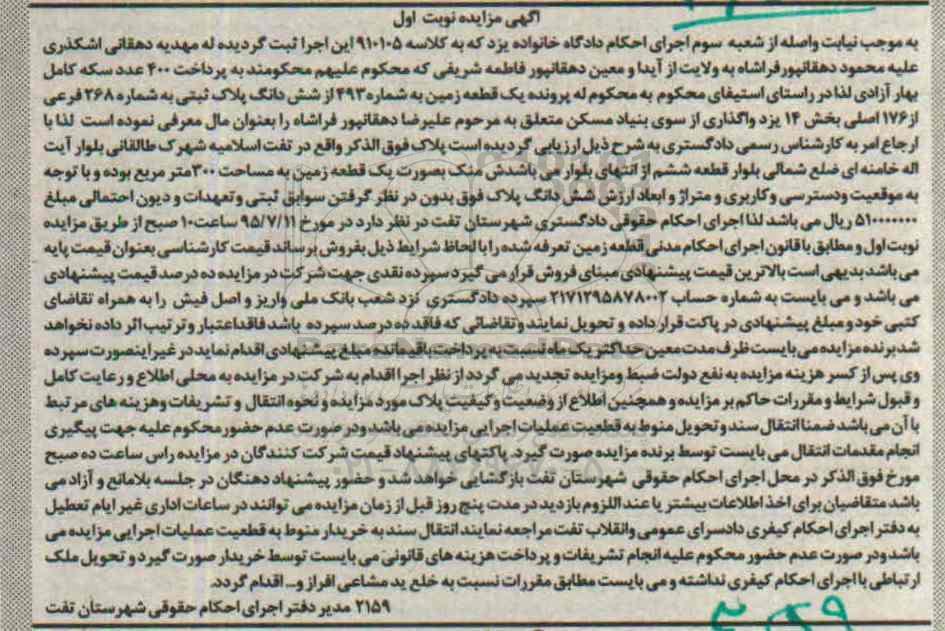 آگهی مزایده نوبت اول
به موجب نیابت واصله از شعبه سوم اجرای احکام دادگاه خانواده یزد که به کلاسه ۹۱۰۱۰۵ این اجرا ثبت گردیده له مهدیه دهقانی اشکذری
علیه محمود دهقانپور فراشاه به ولایت از آیدا و معین دهقانپور فاطمه شریفی که محکوم علیهم محکومند به پرداخت ۴۰۰ عدد سکه کامل
بهار آزادی لذا در راستای استیفای محکوم به محکوم له پرونده یک قطعه زمین به شماره ۴۹۳ از شش دانگ پلاک ثبتی به شماره ۲۶۸ فرعی
از ۱۷۶ اصلی بخش ۱۴ یزد واگذاری از سوی بنیاد مسکن متعلق به مرحوم علیرضا دهقانپور فراشاه را بعنوان مال معرفی نموده است لذا با
ارجاع امر به کارشناس رسمی دادگستری به شرح ذیل ارزیابی گردیده است پلاک فوق الذکر واقع در تفت اسلامیه شهرک طالقانی بلوار آیت
اله خامنه ای ضلع شمالی بلوار قطعه ششم از انتهای بلوار می باشدش منک بصورت یک قطعه زمین به مساحت ۳۰۰متر مربع بوده و با توجه
به موقعیت ودسترسی وکاربری و متراژ و ابعاد ارزش شش دانگ پلاک فوق بدون در نظر گرفتن سوابق ثبتی وتعهدات و دیون احتمالی مبلغ
۵۱۰۰۰۰۰۰۰ ریال می باشد لذا اجرای احکام حقوقی دادگستری شهرستان تفت در نظر دارد در مورخ ۹۵/۷/۱۱ ساعت۱۰ صبح از طریق مزایده
نوبت اول و مطابق با قانون اجرای احکام مدنی قطعه زمین تعرفه شده را با لحاظ شرایط ذیل بفروش برساند قیمت کارشناسی بعنوان قیمت پایه
می باشد بدیهی است بالاترین قیمت پیشنهادی مبنای فروش قرار می گیرد سپرده نقدی جهت شرکت در مزایده ده درصد قیمت پیشنهادی
می باشد و می بایست به شماره حساب ۲۱۷۱۲۹۵۸۷۸۰۰۲ سپرده دادگستری نزد شعب بانک ملی واریز و اصل فیش را به همراه تقاضای
کتبی خود و مبلغ پیشنهادی در پاکت قرار داده و تحویل نمایند وتقاضائی که فاقد ده درصد سپرده باشد فاقد اعتبار و ترتیب اثر داده نخواهد
شد برنده مزایده می بایست ظرف مدت معین حداکثر یک ماه نسبت به پرداخت باقیمانده مبلغ پیشنهادی اقدام نماید در غیر اینصورت سپرده
وی پس از کسر هزینه مزایده به نفع دولت ضبط ومزایده تجدید می گردد از نظر اجرا اقدام به شرکت در مزایده به محلی اطلاع و رعایت کامل
و قبول شرایط و مقررات حاکم بر مزایده و همچنین اطلاع از وضعیت وکیفیت پلاک مورد مزایده و نحوه انتقال و تشریفات وهزینه های مرتبط
با آن می باشد ضمنا انتقال سند و تحویل منوط به قطعیت عملیات اجرایی مزایده می باشد ودر صورت عدم حضور محکوم علیه جهت پیگیری
انجام مقدمات انتقال می بایست توسط برنده مزایده صورت گیرد. پاکتهای پیشنهاد قیمت شرکت کنندگان در مزایده راس ساعت ده صبح
مورخ فوق الذکر در محل اجرای احکام حقوقی شهرستان تفت بازگشایی خواهد شد و حضور پیشنهاد دهنگان در جلسه بلامانع و آزاد می
باشد متقاضیان برای اخذ اطلاعات بیشتر یا عند اللزوم بازدید در مدت پنج روز قبل از زمان مزایده می توانند در ساعات اداری غیر ایام تعطیل
به دفتر اجرای احکام کیفری دادسرای عمومی وانقلاب تفت مراجعه نمایند انتقال سند به خریدار منوط به قطعیت عملیات اجرایی مزایده می
باشد ودر صورت عدم حضور محکوم علیه انجام تشریفات و پرداخت هزینه های قانونی می بایست توسط خریدار صورت گیرد و تحویل ملک
ارتباطی با اجرای احکام کیفری نداشته و می بایست مطابق مقررات نسبت به خلع ید مشاعی افراز و... اقدام گردد.
۲۱۵۹ مدیر دفتر اجرای احکام حقوقی شهرستان تفت